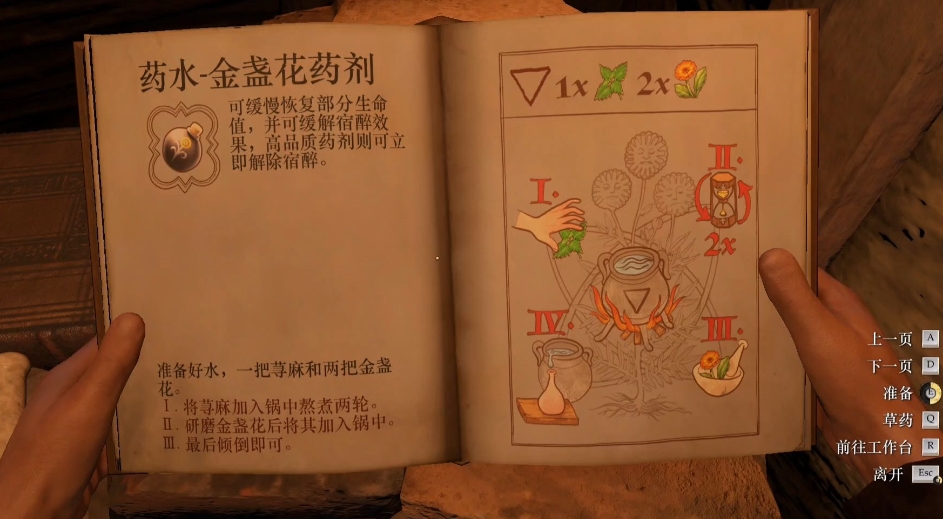 药水-金盏花药剂
可缓慢恢复部分生命
值，并可缓解宿醉效
果，高品质药剂则可立
即解除宿醉。
准备好水，一把荨麻和两把金盏
花。
I. 将荨麻加入锅中熬煮两轮。
II. 研磨金盏花后将其加入锅中。
III. 最后倾倒即可。
1x 2x
I.
II.
2x
IV.
III.
上一页 A
下一页 D
准备 E
草药 Q
前往工作台 R
离开 Esc